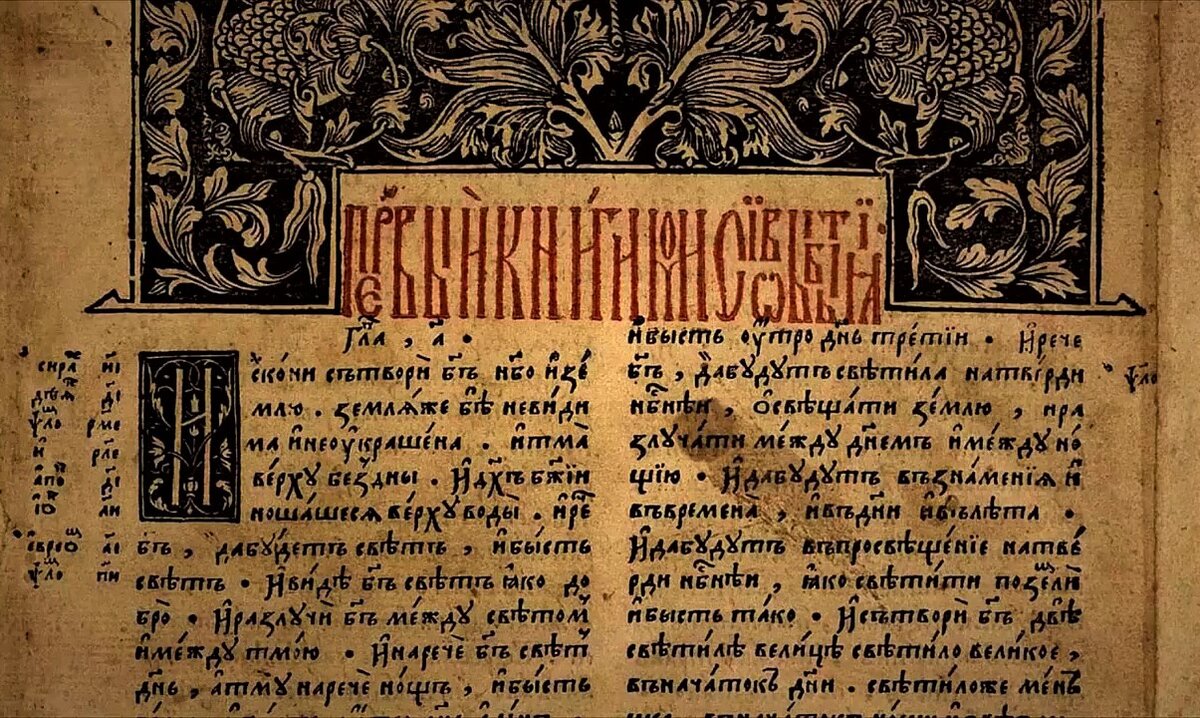 Гл҃а , а҃ .
И҆скони сътворѝ бг҃ъ нб҃о и҆ зе́
млю . земля́же бѣ̀ неви́ди
ма и҆неѹ҆краше́на . и҆тма̀
ве́рху бе́здны . И҆дх҃ъ бж҃іи
ношашеся ве́рху воды̀ . и҆ре҇ч
бг҃ъ , дабу́детъ свѣ́тъ , и҆бы́сть
свѣ́тъ . И҆ви́дѣ бг҃ъ свѣ́тъ ꙗ҆́ко до
бро̀ . И҆разлучѝ бг҃ъ ме́жду свѣ́томъ
и҆ме́жду тмо́ю . И҆наречѐ бг҃ъ свѣ́тъ
дн҃ь , а҆тму̀ наречѐ но́щъ , и҆бы́сть
и҆бы́сть ѹ҆́тро дн҃ь тре́тіи . И҆рече
бг҃ъ , да̀бу́дутъ свѣти́ла натве́рди
нбⷭ҇нѣи , ѡ҆свѣща́ти зе́млю , ира
злуча́ти ме́жду дн҃емъ и҆ме́жду но́
щію . И҆дабу́дутъ възна́менія и҆
въвремена̀ , и҆въдни и҆вълѣта .
И҆дабу́дутъ въпросвѣще́ніе натве́
рди нбⷭ҇нѣи , ꙗ҆́ко свѣти́ти поземлѝ
и҆бы́сть та́ко . И҆сътворѝ бг҃ъ двѣ̀
свѣти́лѣ вели́цѣ свѣти́ло вели́кое ,
вънача́токъ дн҃и . свѣти́ложе ме́нъ